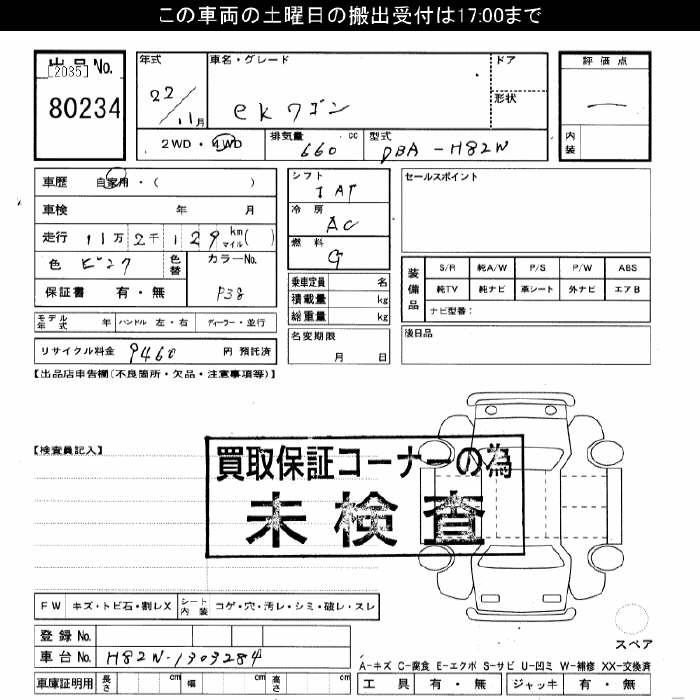 この車両の土曜日の搬出受付は17:00まで
出品No.
[2035]
80234
年式
22/11月
車名・グレード
ekワゴン
ドア
形状
評価点
内装
2WD・4WD
排気量 660 cc
型式 DBA-H82W
車歴 自家用・( )
車検 年 月
走行 11万2千129km マイル( )
色 ピンク 色替
カラーNo. P38
保証書 有・無
シフト IAT
冷房 AC
燃料 G
乗車定員 名
積載量 kg
総重量 kg
名変期限 月 日
セールスポイント
装備品
S/R 純A/W P/S P/W ABS
純TV 純ナビ 革シート 外ナビ エアB
ナビ型番:
後日品
モデル年式 年 ハンドル 左・右 ディーラー・並行
リサイクル料金 9460 円 預託済
【出品店申告欄(不良箇所・欠品・注意事項等)】
【検査員記入】
買取保証コーナーの為
未検査
FW キズ・トビ石・割レX シート内装 コゲ・穴・汚レ・シミ・破レ・スレ
登録No.
車台No. H82W-1303284
スペア
A-キズ C-腐食 E-エクボ S-サビ U-凹ミ W-補修 XX-交換済
車庫証明用 長さ cm 幅 cm 高さ cm
工具 有・無 ジャッキ 有・無